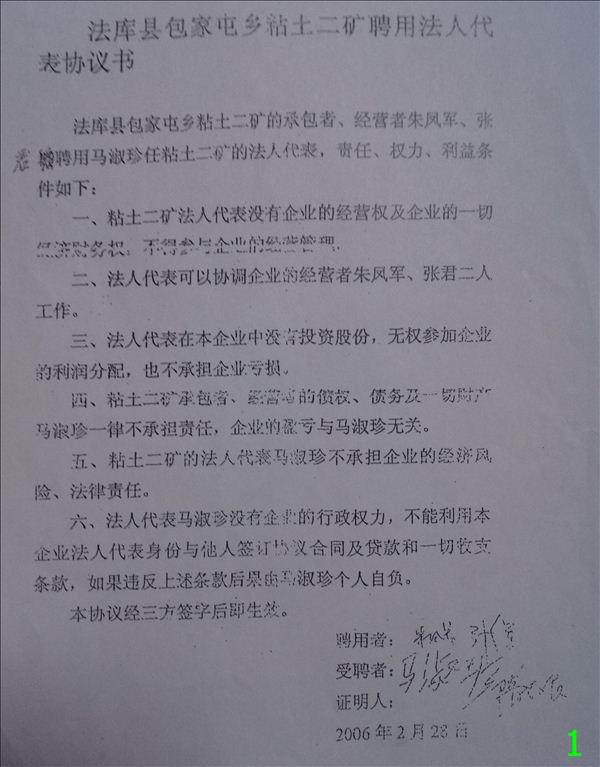 法库县包家屯乡粘土二矿聘用法人代
表协议书
法库县包家屯乡粘土二矿的承包者、经营者朱凤军、张
聘用马淑珍任粘土二矿的法人代表，责任、权力、利益条
件如下：
一、粘土二矿法人代表没有企业的经营权及企业的一切
经济财务权，不得参与企业的经营管理。
二、法人代表可以协调企业的经营者朱凤军、张君二人
工作。
三、法人代表在本企业中没有投资股份，无权参加企业
的利润分配，也不承担企业亏损。
四、粘土二矿承包者、经营者的债权、债务及一切财产
马淑珍一律不承担责任，企业的盈亏与马淑珍无关。
五、粘土二矿的法人代表马淑珍不承担企业的经济风
险、法律责任。
六、法人代表马淑珍没有企业的行政权力，不能利用本
企业法人代表身份与他人签订协议合同及贷款和一切收支
条款，如果违反上述条款后果由马淑珍个人自负。
本协议经三方签字后即生效。
聘用者：
受聘者：马淑珍
证明人：
2006年2月28日
1